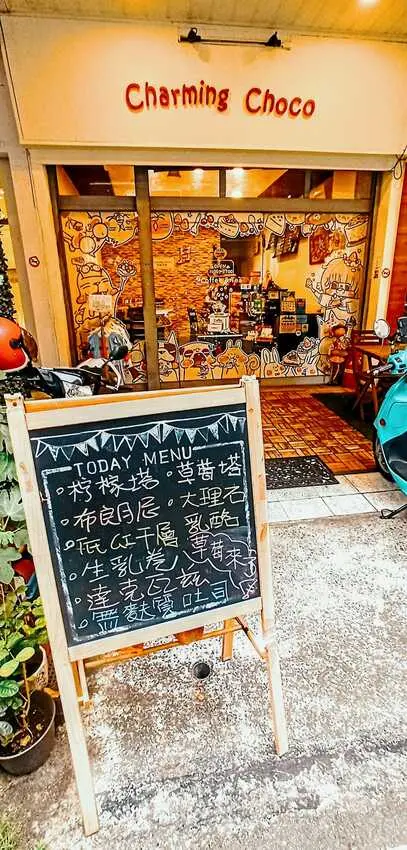 Charming Choco
TODAY MENU
。檸檬塔 。草莓塔
。布朗尼 。大理石
。低GI千層 乳酪
。生乳卷
。達克瓦茲
。無麩質吐司
草莓來